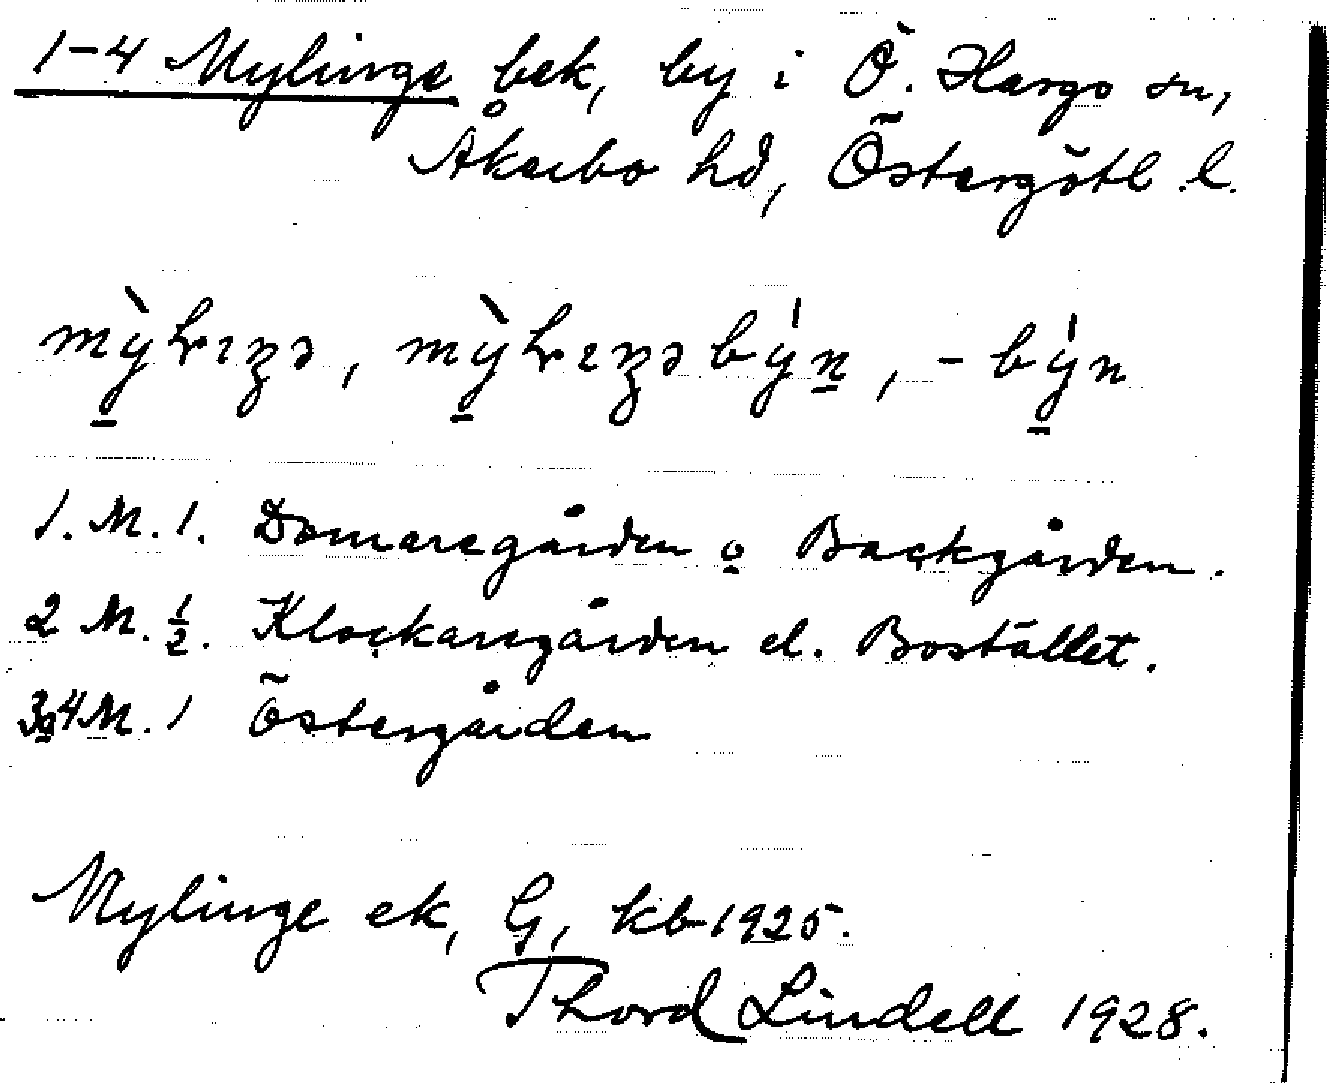 1-4 Mylinge bek, by i Ö. Hargs sn,
Åkerbo hd, Östergötl. l.
1. M. 1. Domaregården o Backgården.
2 M. ½. Klockaregården el. Boställlet.
3o4 M. 1 Östergården
Mylinge ek, G, kb 1925.
Thord Lindell 1928.